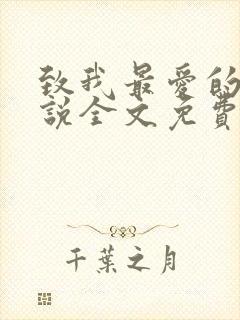 致我最爱的
説全文免費
千葉之月